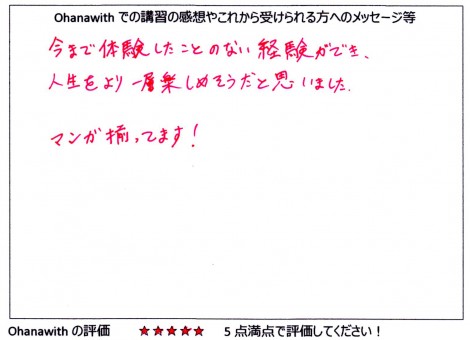 Ohanawith での講習の感想やこれから受けられる方へのメッセージ等
今まで体験したことのない経験ができ、
人生をより一層楽しめそうだと思いました.
マンガ揃ってます!
Ohanawith の評価 ★★★★★ 5 点満点で評価してください！